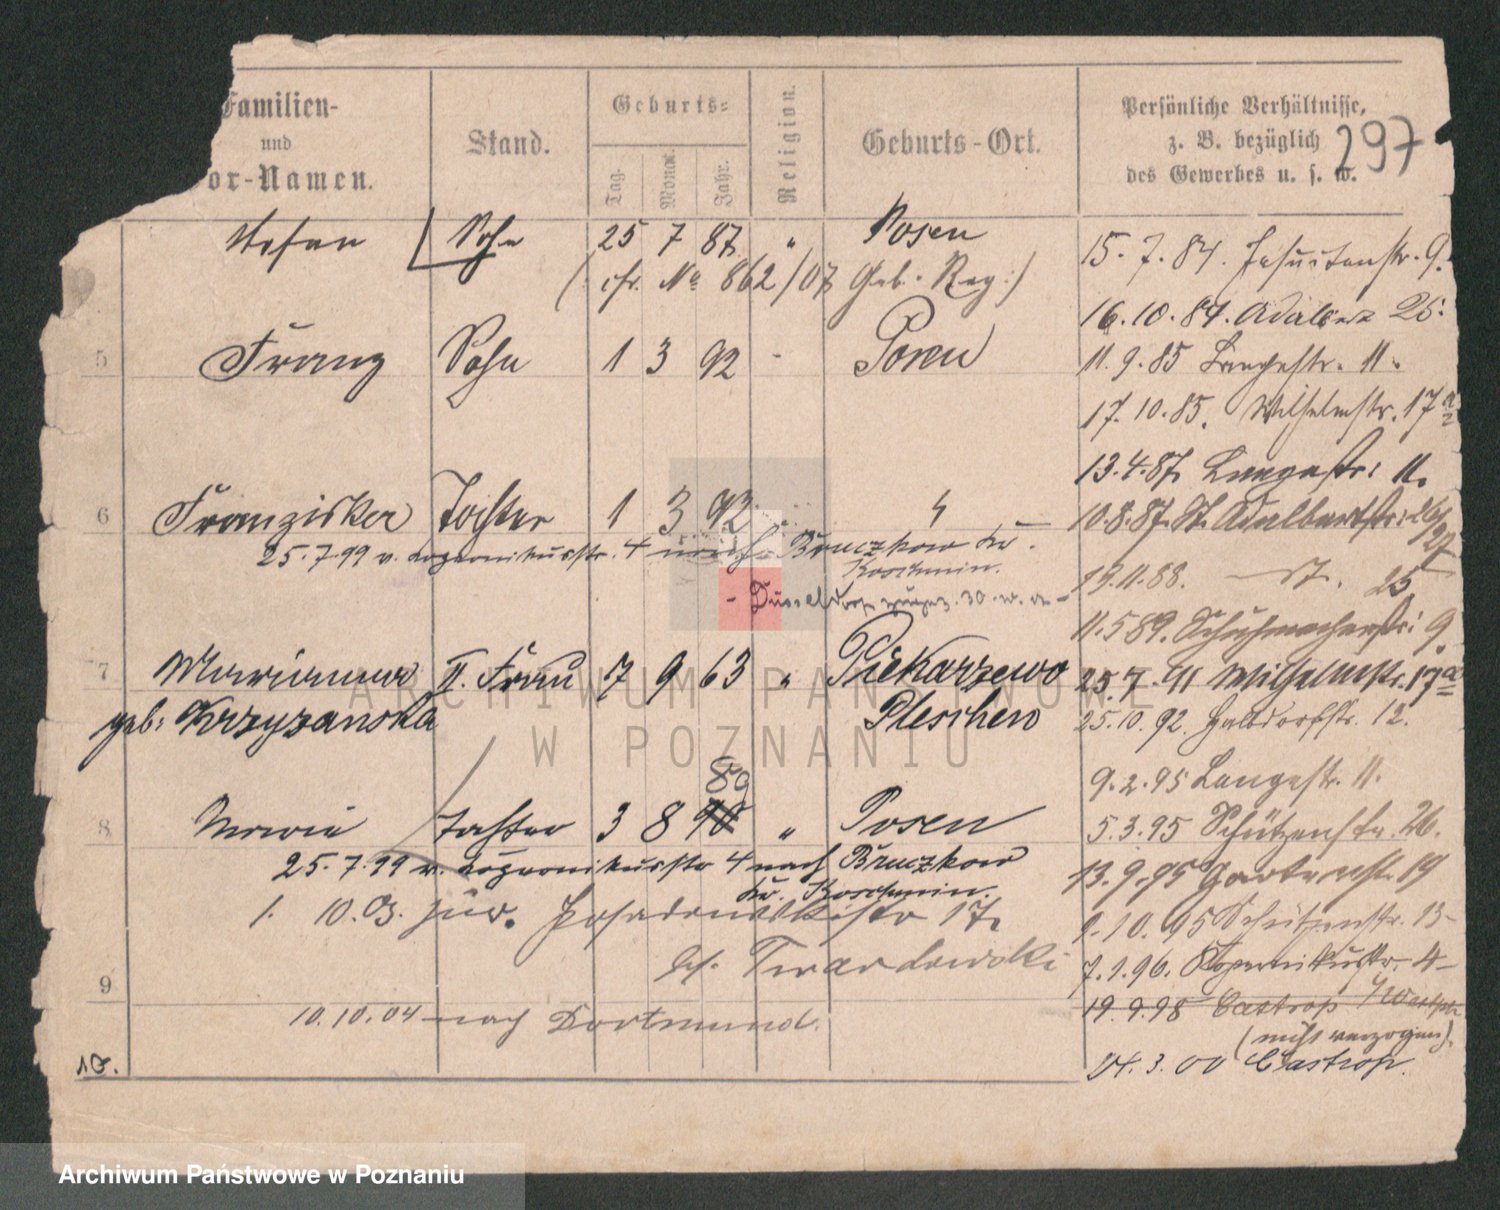 Familien-
und
Vor-Namen.
Stand.
Geburts-
Tag.
Monat.
Jahr.
Religion.
Geburts-Ort.
Persönliche Verhältnisse,
z. B. bezüglich
des Gewerbes u. s. w.
297
Stefan Sohn 25 7 87 " Posen
(: cfr. No 862/07 Geb.-Reg:)
5 Franz Sohn 1 3 92 - Posen
6 Franziska Tochter 1 3 92 "
25.7.99 v. Kopernikusstr. 4 nach Bruczkow Kr.
Koschmin.
- Düsseldorf 30.
7 Marianna II. Frau 7 9 63 " Piekarzewo
geb: Krzyzanska Pleschen
89
8 Marie Tochter 3 8 90 " Posen
25.7.99 v. Kopernikusstr 4 nach Bruczkow
Kr. Koschmin.
1. 10.03. zur. Posadowskistr 17.
bei Twardowski
9
10.10.04 nach Dortmund.
10.
15.7.84. Jesuitenstr. 9.
16.10.84. Adalbert 25.
11.9.85 Langestr. 11.
17.10.85. Wilhelmstr. 17a
13.4.87. Langestr: 11.
10.8.87. St. Adalbertstr: 26/27
19.11.88. — St. 25
11.5.89. Schuhmacherstr: 9.
25.7.91 Wilhelmstr. 17a
25.10.92. Halbdorfstr. 12.
9.2.95 Langestr. 11.
5.3.95 Schützenstr. 26.
13.9.95 Gartenstr. 19
1.10.95 Schützenstr. 13-
7.1.96. Kopernikusstr. 4-
19.9.98 Castrop /Westph
(nicht verzogen).
3.00 Castrop.
ARCHIWUM PAŃSTWOWE
W POZNANIU
Archiwum Państwowe w Poznaniu